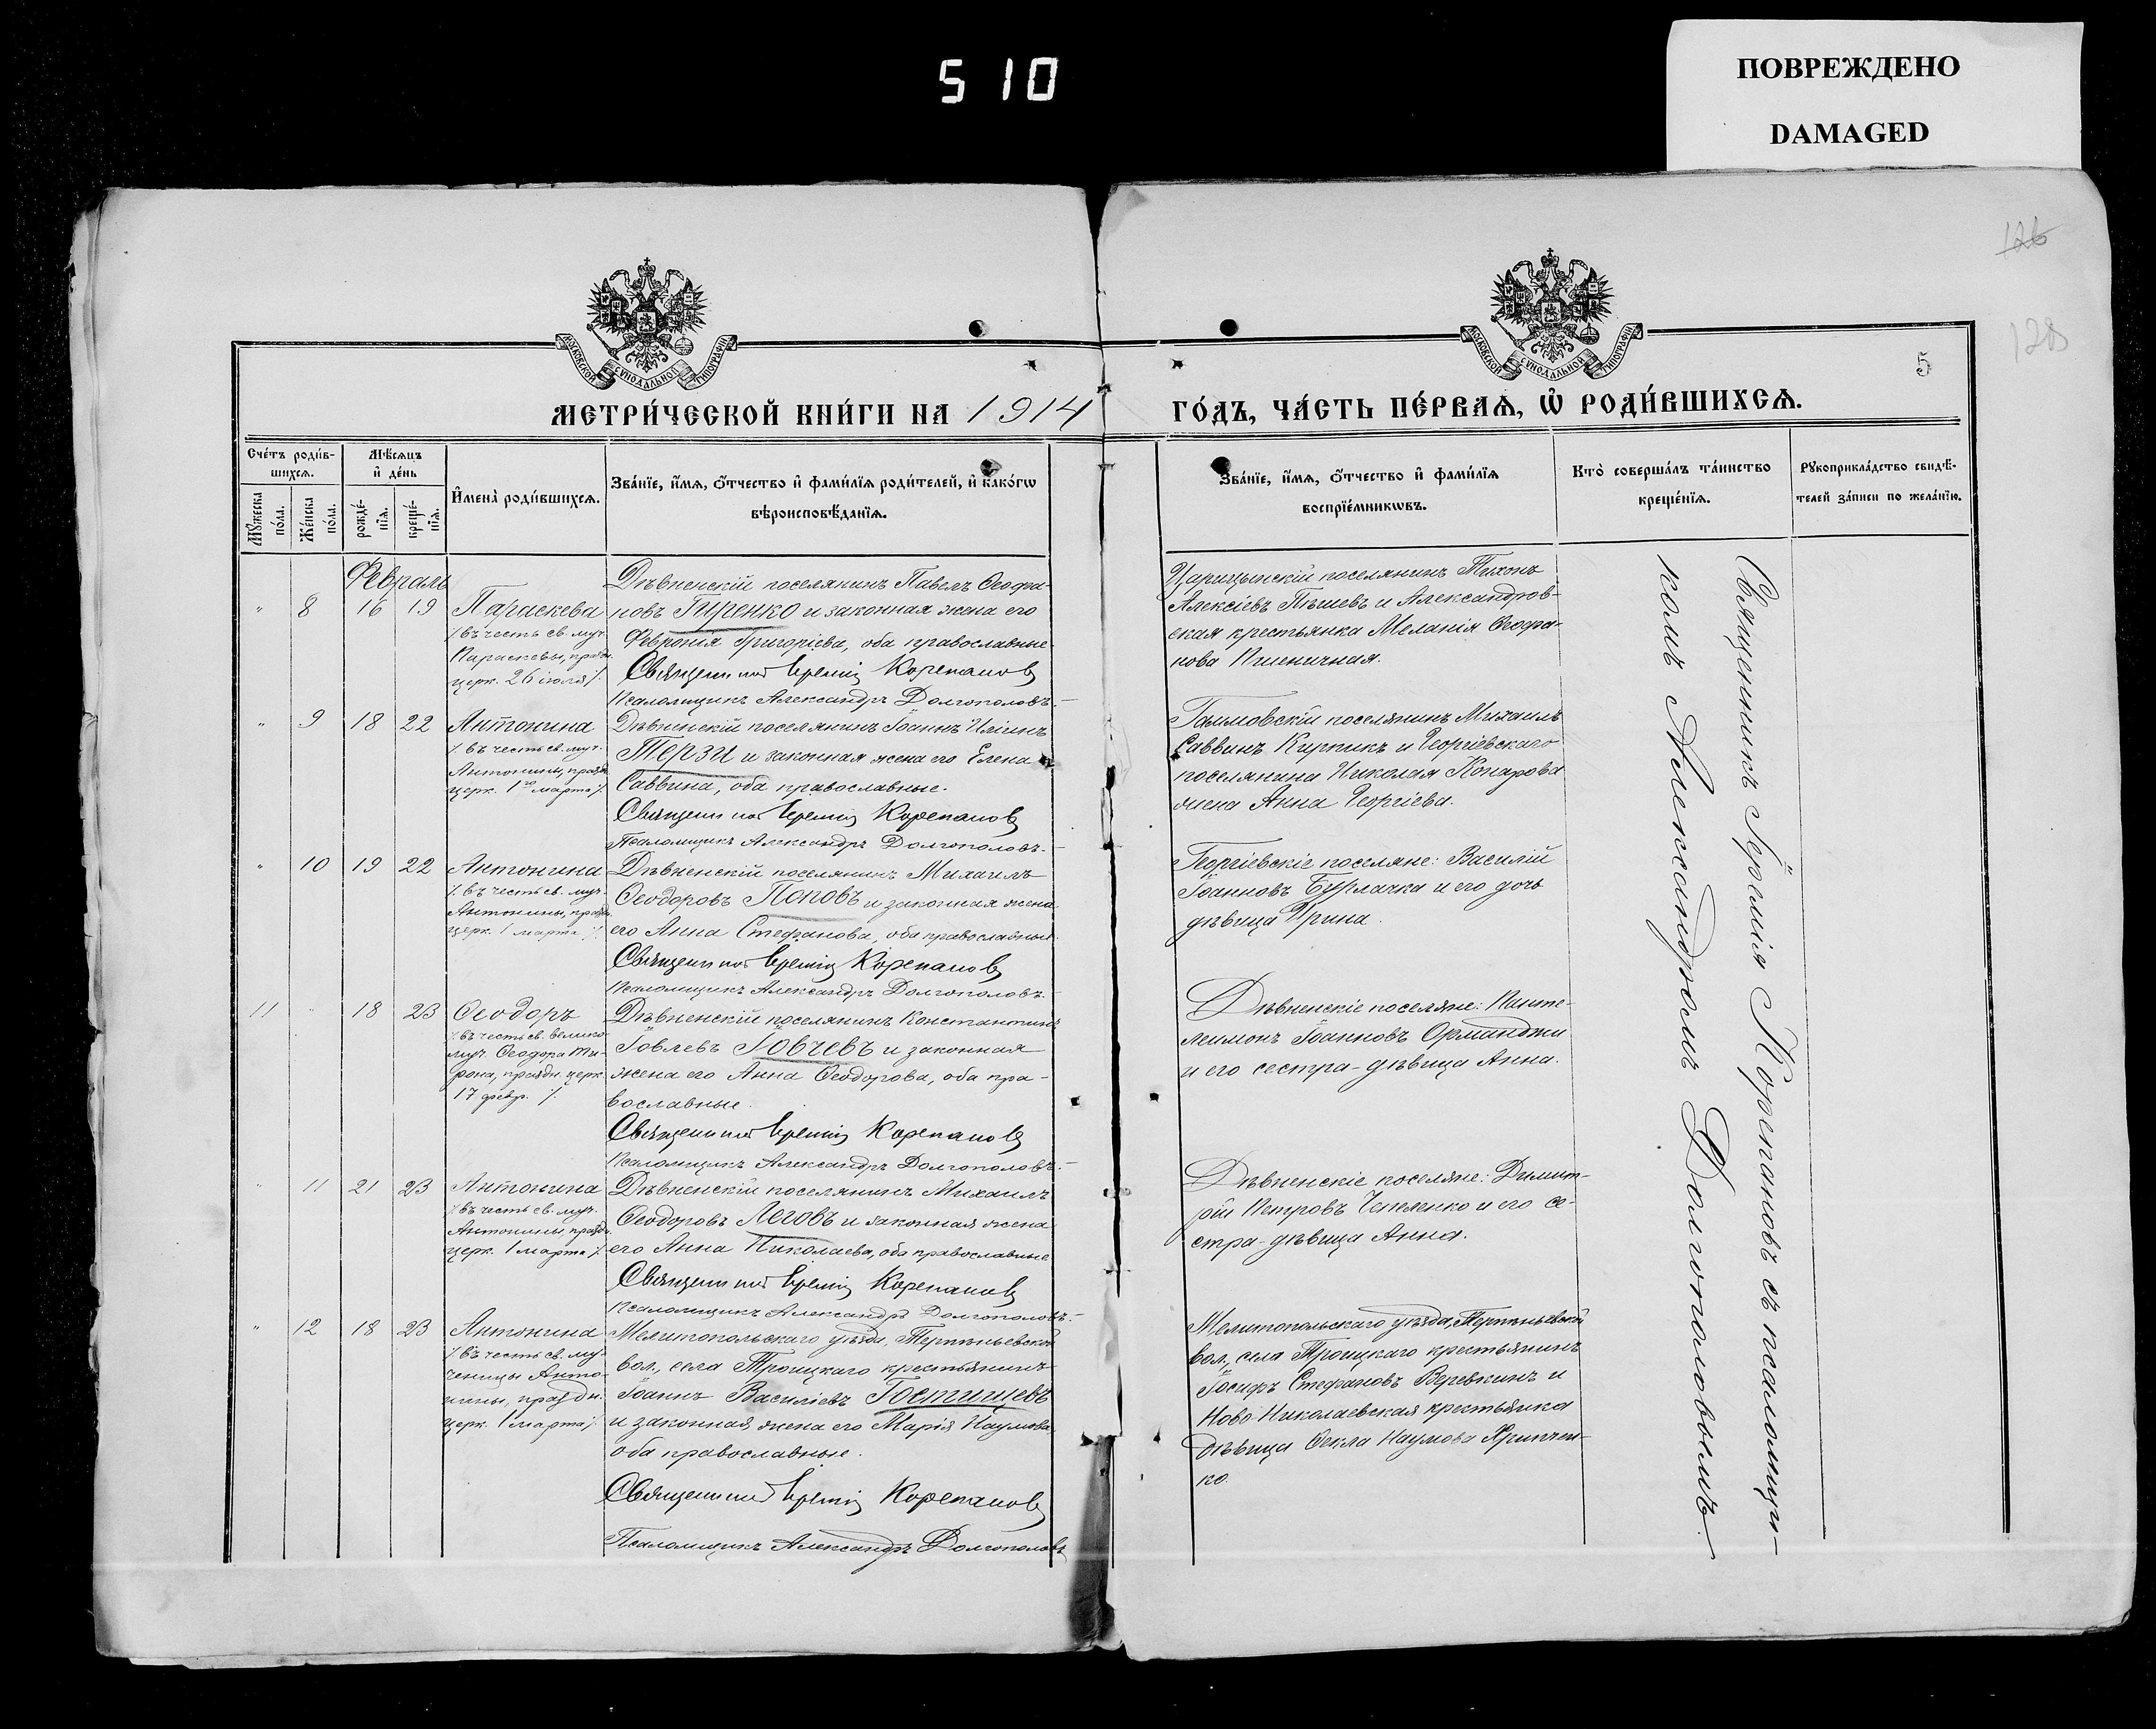 510
ПОВРЕЖДЕНО
DAMAGED
126
128
5
МОСКОВСКОЙ СѴНОДАЛЬНОЙ ТИПОГРАФІИ
МОСКОВСКОЙ СѴНОДАЛЬНОЙ ТИПОГРАФІИ
МЕТРИ́ЧЕСКОЙ КНИ́ГИ НА 1914
ГО́ДЪ, ЧА́СТЬ ПЕ́РВАѦ, Ѽ РОДИ́ВШИХСѦ.
Сче́тъ роди́в-
шихсѧ.
Мꙋ́жеска по́ла.
Же́нска по́ла.
Мѣ́сѧцъ
и҆ де́нь
рожде́-
нїѧ.
креще́-
нїѧ.
И҆мена̀ роди́вшихсѧ.
Зва́нїе, и҆́мѧ, ѻ҆́тчество и҆ фами́лїѧ роди́телей, и҆ како́гѡ
вѣроисповѣ́данїѧ.
Зва́нїе, и҆́мѧ, ѻ҆́тчество и҆ фами́лїѧ
воспрїе́мникѡвъ.
Кто̀ соверша́лъ та́инство
креще́нїѧ.
Рꙋкоприкла́дство свидѣ́-
телей за́писи по жела́нїю.
Февраль
" 8 16 19
Параскева
/. въ честь св. муч.
Параскевы, праздн.
церк. 26 іюля /.
Дѣвненскій поселянинъ Павелъ Ѳеофа-
новъ Гиренко и законная жена его
Февронія Григоріева, оба православные
Священникъ Іеремія Корепановъ
Псаломщикъ Александръ Долгополовъ.
Царицынскій поселянинъ Тихонъ
Алексіевъ Пѣшевъ и Александров-
ская крестьянка Меланія Ѳеофа-
нова Пшеничная.
" 9 18 22
Антонина
/. въ честь св. муч.
Антонины, праздн.
церк. 1го марта /.
Дѣвненскій поселянинъ Іоаннъ Иліинъ
Терзи и законная жена его Елена
Саввина, оба православные.
Священникъ Іеремія Корепановъ
Псаломщикъ Александръ Долгополовъ.
Гаммовскій поселянинъ Михаилъ
Саввинъ Кирпикъ и Георгіевскаго
поселянина Николая Конарова
жена Анна Георгіева.
" 10 19 22
Антонина
/. въ честь св. муч.
Антонины, праздн.
церк. 1 марта /.
Дѣвненскій поселянинъ Михаилъ
Ѳеодоровъ Поповъ и законная жена
его Анна Стефанова, оба православные.
Священникъ Іеремія Корепановъ
Псаломщикъ Александръ Долгополовъ.
Георгіевскіе поселяне: Василій
Іоанновъ Бурлачка и его дочь
дѣвица Ирина.
11 " 18 23
Ѳеодоръ
/. въ честь св. велико-
муч. Ѳеодора Ти-
рона, праздн. церк.
17 февр. /.
Дѣвненскій поселянинъ Константинъ
Іовлевъ Іовчевъ и законная
жена его Анна Ѳеодорова, оба пра-
вославные.
Священникъ Іеремія Корепановъ
Псаломщикъ Александръ Долгополовъ.
Дѣвненскіе поселяне: Панте-
леимонъ Іоанновъ Орманджи
и его сестра-дѣвица Анна.
" 11 21 23
Антонина
/. въ честь св. муч.
Антонины, праздн.
церк. 1 марта /.
Дѣвненскій поселянинъ Михаилъ
Ѳеодоровъ Леговъ и законная жена
его Анна Николаева, оба православные
Священникъ Іеремія Корепановъ
Псаломщикъ Александръ Долгополовъ.
Дѣвненскіе поселяне: Димит-
рій Петровъ Чепеленко и его се-
стра-дѣвица Анна.
" 12 18 23
Антонина
/. въ честь св. му-
ченицы Анто-
нины, праздн.
церк. 1 марта /.
Мелитопольскаго уѣзда, Терпѣньевской
вол., села Троицкаго крестьянинъ
Іоаннъ Василіевъ Гостищевъ
и законная жена его Марія Наумова
оба православные.
Священникъ Іеремія Корепановъ
Псаломщикъ Александръ Долгополовъ
Мелитопольскаго уѣзда, Терпѣньевской
вол., села Троицкаго крестьянинъ
Іосифъ Стефановъ Веревкинъ и
Ново-Николаевская крестьянка
дѣвица Ѳекла Наумова Хрипчен-
ко.
Священникъ Іеремія Корепановъ съ псаломщи-
комъ Александромъ Долгополовымъ.